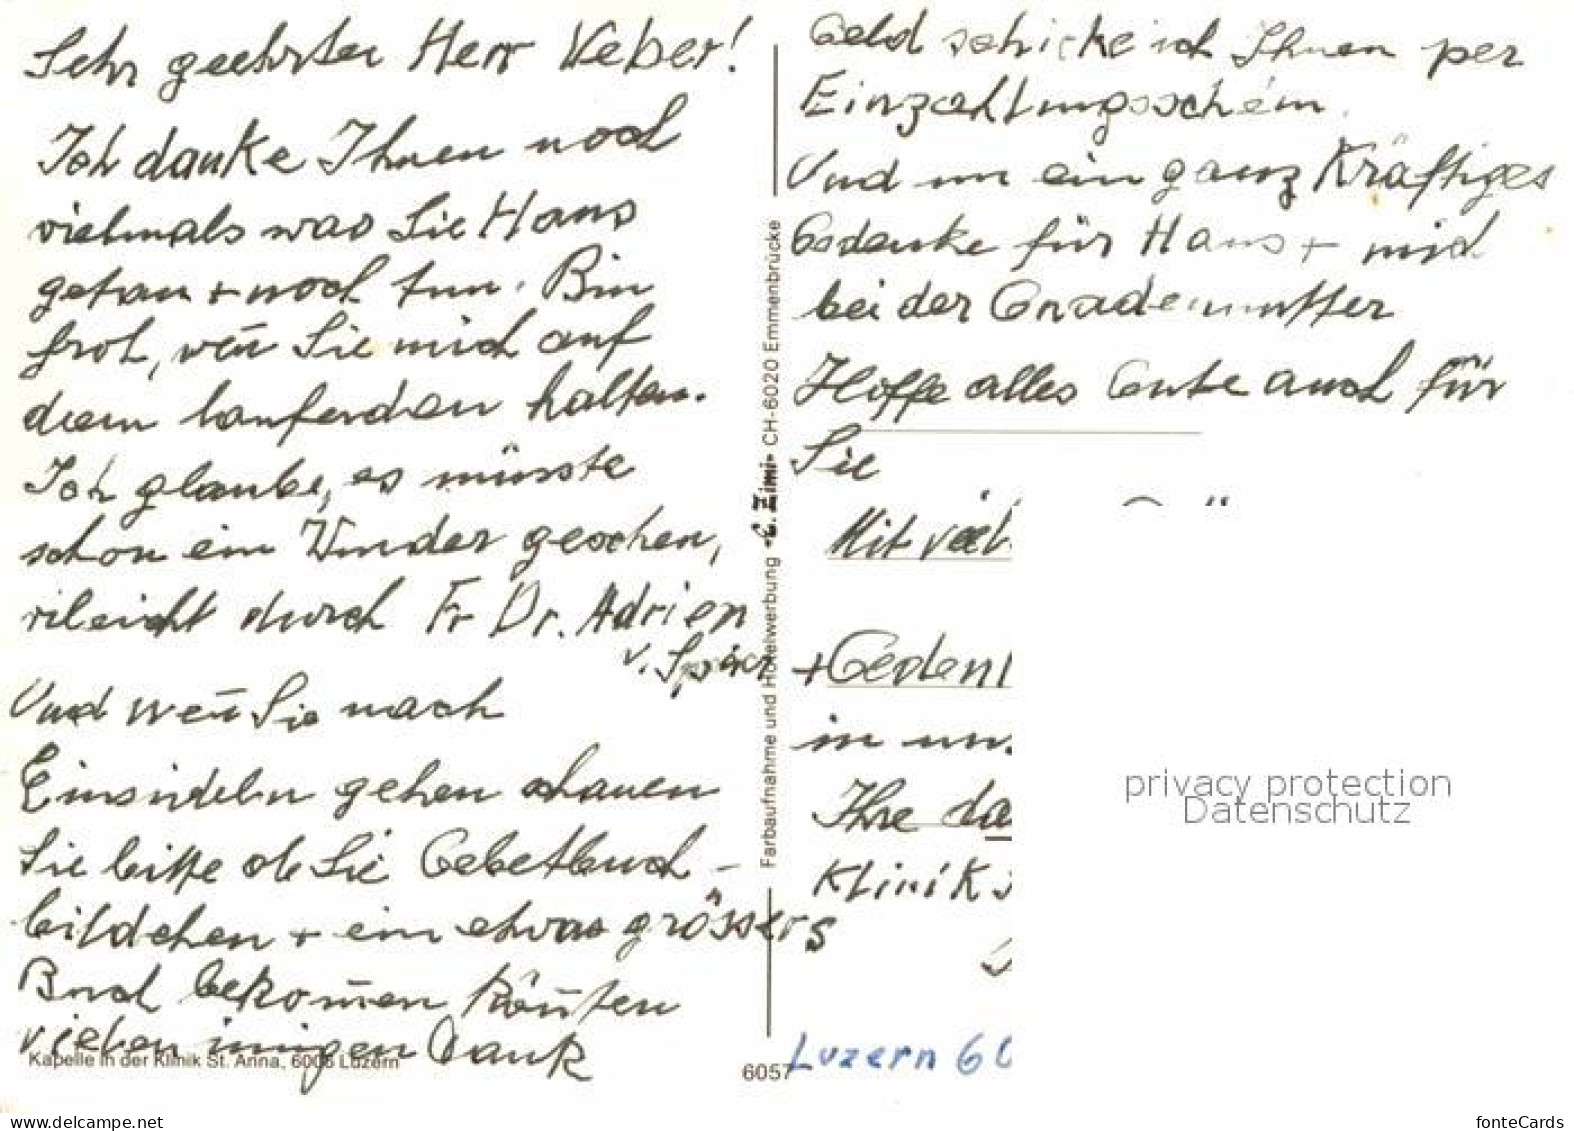 Sehr geehrter Herr Weber!
Ich danke Ihnen noch
vielmals was Sie Hans
getan + noch tun. Bin
froh, weñ Sie mich auf
dem laufenden halten.
Ich glaube, es müsste
schon ein Wunder geschen,
vileicht durch Fr Dr. Adrien
v. Spier
Und weñ Sie nach
Einsideln gehen schauen
Sie bitte ob Sie Gebetbuch-
bildchen + ein etwas grössers
Buch bekom̄en kön̄ten
vielen innigen Dank
Kapelle in der Klinik St. Anna, 6006 Luzern
Farbaufnahme und Hotelwerbung «C. Zimi» CH-6020 Emmenbrücke
6057
Geld schicke ich Ihnen per
Einzahlungsschein.
Und um ein ganz Kräftiges
Gedenke für Hans + mich
bei der Gnadenmutter
Hoffe alles Gute auch für
Sie
Mit viel
+ Geden
in un
Ihre da
Klinik
Luzern 60
privacy protection
Datenschutz
My-store.ch
fonteCards